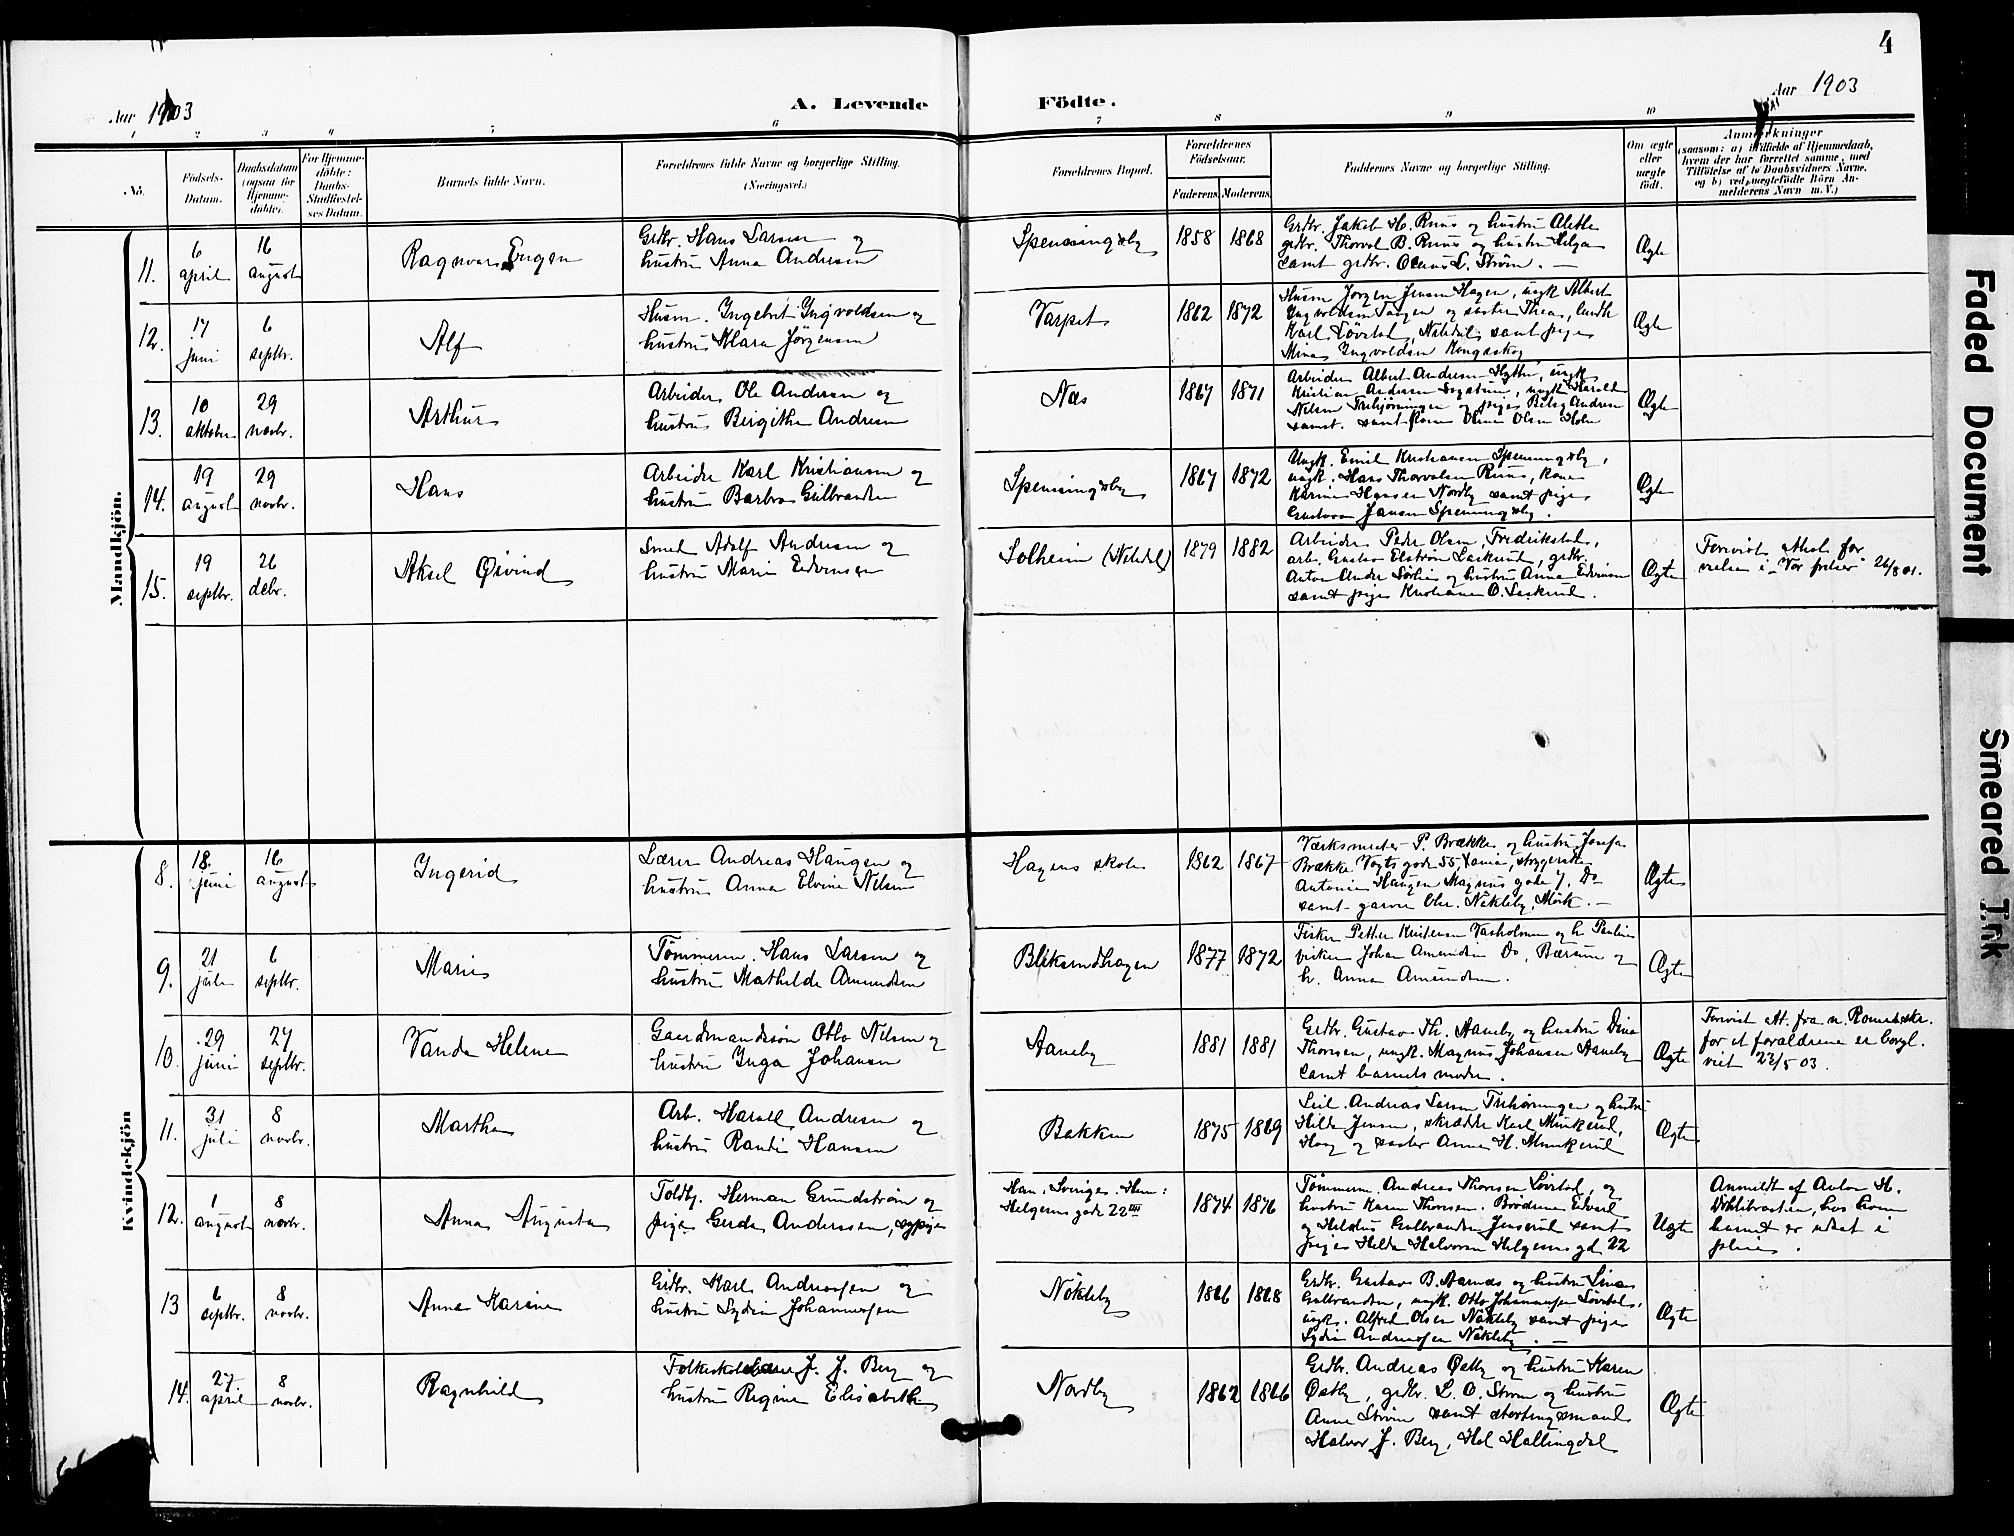 4
Aar 1903
A. Levende Födte.
Aar 1903
1 2 3 4 5 6 7 8 9 10
No.
Födsels-
Datum.
Daabsdatum
(ogsaa for
Hjemme-
döbte).
For Hjemme-
döbte:
Daabs-
Stadfæstel-
ses Datum.
Barnets fulde Navn.
Forældrenes fulde Navne og borgerlige Stilling.
(Næringsvei.)
Forældrenes Bopæl.
Forældrenes
Födselsaar.
Faderens. Moderens.
Faddernes Navne og borgerlige Stilling.
Om ægte
eller
uægte
födt.
Anmærkninger
(saasom: a) i Tilfælde af Hjemmedaab,
hvem der har forrettet samme, med
Tilföielse af to Daabsvidners Navne,
og b) ved uægtefödte Börn An-
melderens Navn m. V.)
Mandkjön.
11.
6
april
16
august
Ragnvar Eugen
Grdbr. Hans Larsen og
hustru Anna Andersen
Spenningsby
1858 1868
Grdbr. Jakob H. Ruus og hustru Alethe
grdbr. Thorval B. Ruus og hustru Helga
samt grdbr. Olaus L. Strøm. —
Ægte
12.
17
juni
6
septbr.
Alf
Husm. Ingebret Ingvoldsen og
hustru Mara Jörgensen
Varpet
1862 1872
Husm Jorgen Jensen Hagen, ungk Albert
Ingvoldsen Tangen og søster Thea,
Karl Løvstad, Nesdal samt pige
Mina Ingvoldsen Kongsskog
Ægte
13.
10
oktober
29
novbr.
Arthur
Arbeider Ole Andersen og
hustru Birgithe Andersen
Næs
1867 1871
Arbeider Albert Andersen Hytten, ungk
Kristian Andersen, ungk Harald
Nilsen Trehjørningen og pige Betsy Andersen
samt. samt kone Olsen Holm
Ægte
14.
19
august
29
novbr.
Hans
Arbeider Karl Kristiansen og
hustru Barbra Gulbrandsen
Spenningsby
1867 1872
Ungk. Emil Kristiansen Spenningsby,
ungk. Hans Thorvalsen Ruus, kone
Karine Hansen Nordby samt pige
Gustava Jansen Spenningsby.
Ægte
15.
19
septbr.
26
debr.
Aksel Øivind
Smed Adolf Andersen og
hustru Marie Edvinsen
Solheim (Nesdal)
1879 1882
Arbeider Peder Olsen, Fredrikstad,
arb. Gustav Elstrøm Laskerud, grdbr.
Anton Andr. Sørlie og hustru Anna Edvinsen
samt pige Kristiane O. Laskerud.
Ægte
Forevist Attest for
vielsen i "Vor frelser" 26/8 01.
Kvindekjön
8.
18.
juni
16
august
Ingerid
Lærer Andreas Haugen og
hustru Anna Elvine Nilsen
Hagens skole
1862 1867
Værksmester P. Brække og hustru Josefa
Brække Vogts gade 55, Xania, strygerske
Antonie Haugen Magnus gade 7, Do
samt garver Olsen Näkleby, Mörk. —
Ægte
9.
21
juli
6
septbr.
Marie
Tömmerm. Hans Larsen og
hustru Mathilde Amundsen
Bliksrudhagen
1877 1872
Fisker Petter Kristensen Vasholmen og h. Pauline
Johan Amundsen Do, Bærum og
h. Anna Amundsen.
Ægte
10.
29
juni
27
septbr.
Vanda Helene
Gaardmandssön Otto Nilsen og
hustru Inga Johansen
Aaneby
1881 1881
Grdbr. Gustav Th. Aaneby og hustru Dina
Thorsen, ungk. Magnus Johansen Aaneby
samt barnets moder.
Ægte
Forevist Att. fra n. Romeriske.
for at forældrene er borgl.
viet 22/5 03.
11.
31
juli
8
novbr.
Martha
Arb. Harald Andersen og
hustru Randi Hansen
Bakken
1875 1869
Leil. Andreas Larsen Trehørningen og hustru
Hilda Jensen, skrædder Karl Munkerud,
Haag og søster Anna H. Munkerud
Ægte
12.
1
august
8
novbr.
Anna Augusta
Toldbj. Herman Grundstrøm og
pige Gerda Anderssen, sypige
Han: Sverige. Hun:
Helgesens gade 22 III
1874 1876
Tömmerm Andreas Thorsen Løvstad, og
hustru Karen Thorsen. Brødrene Edvard
og Hildus Gulbrandsen Jenserud samt
pige Hilda Halvorsen Helgesens gd 22
Uægte
Anmeldt af Anton H.
hos hvem
barnet er udsat i
pleie.
13
6
septbr.
8
novbr.
Anna Karine
Grdbr. Karl Andreassen og
hustru Lydia Johannessen
Näkleby
1866 1868
Grdbr. Gustav B. Aarnæs og hustru Lina
Gulbrandsen, ungk. Otto Johannessen Løvstad,
ungk. Alfred Olsen Näkleby samt pige
Lydia Andreassen Näkleby. —
Ægte
14.
27
april
8
novbr.
Ragnhild
Folkeskolelærer J. J. Berg og
hustru Regine Elisabeth
Nordby
1862 1866
Grdbr. Andreas Østby og hustru Karen
Østby, grdbr. L. O. Strøm og hustru
Anne Strøm samt stortingsmand
Halvor J. Berg, Hol Hallingdal
Ægte
Faded Document
Smeared Ink